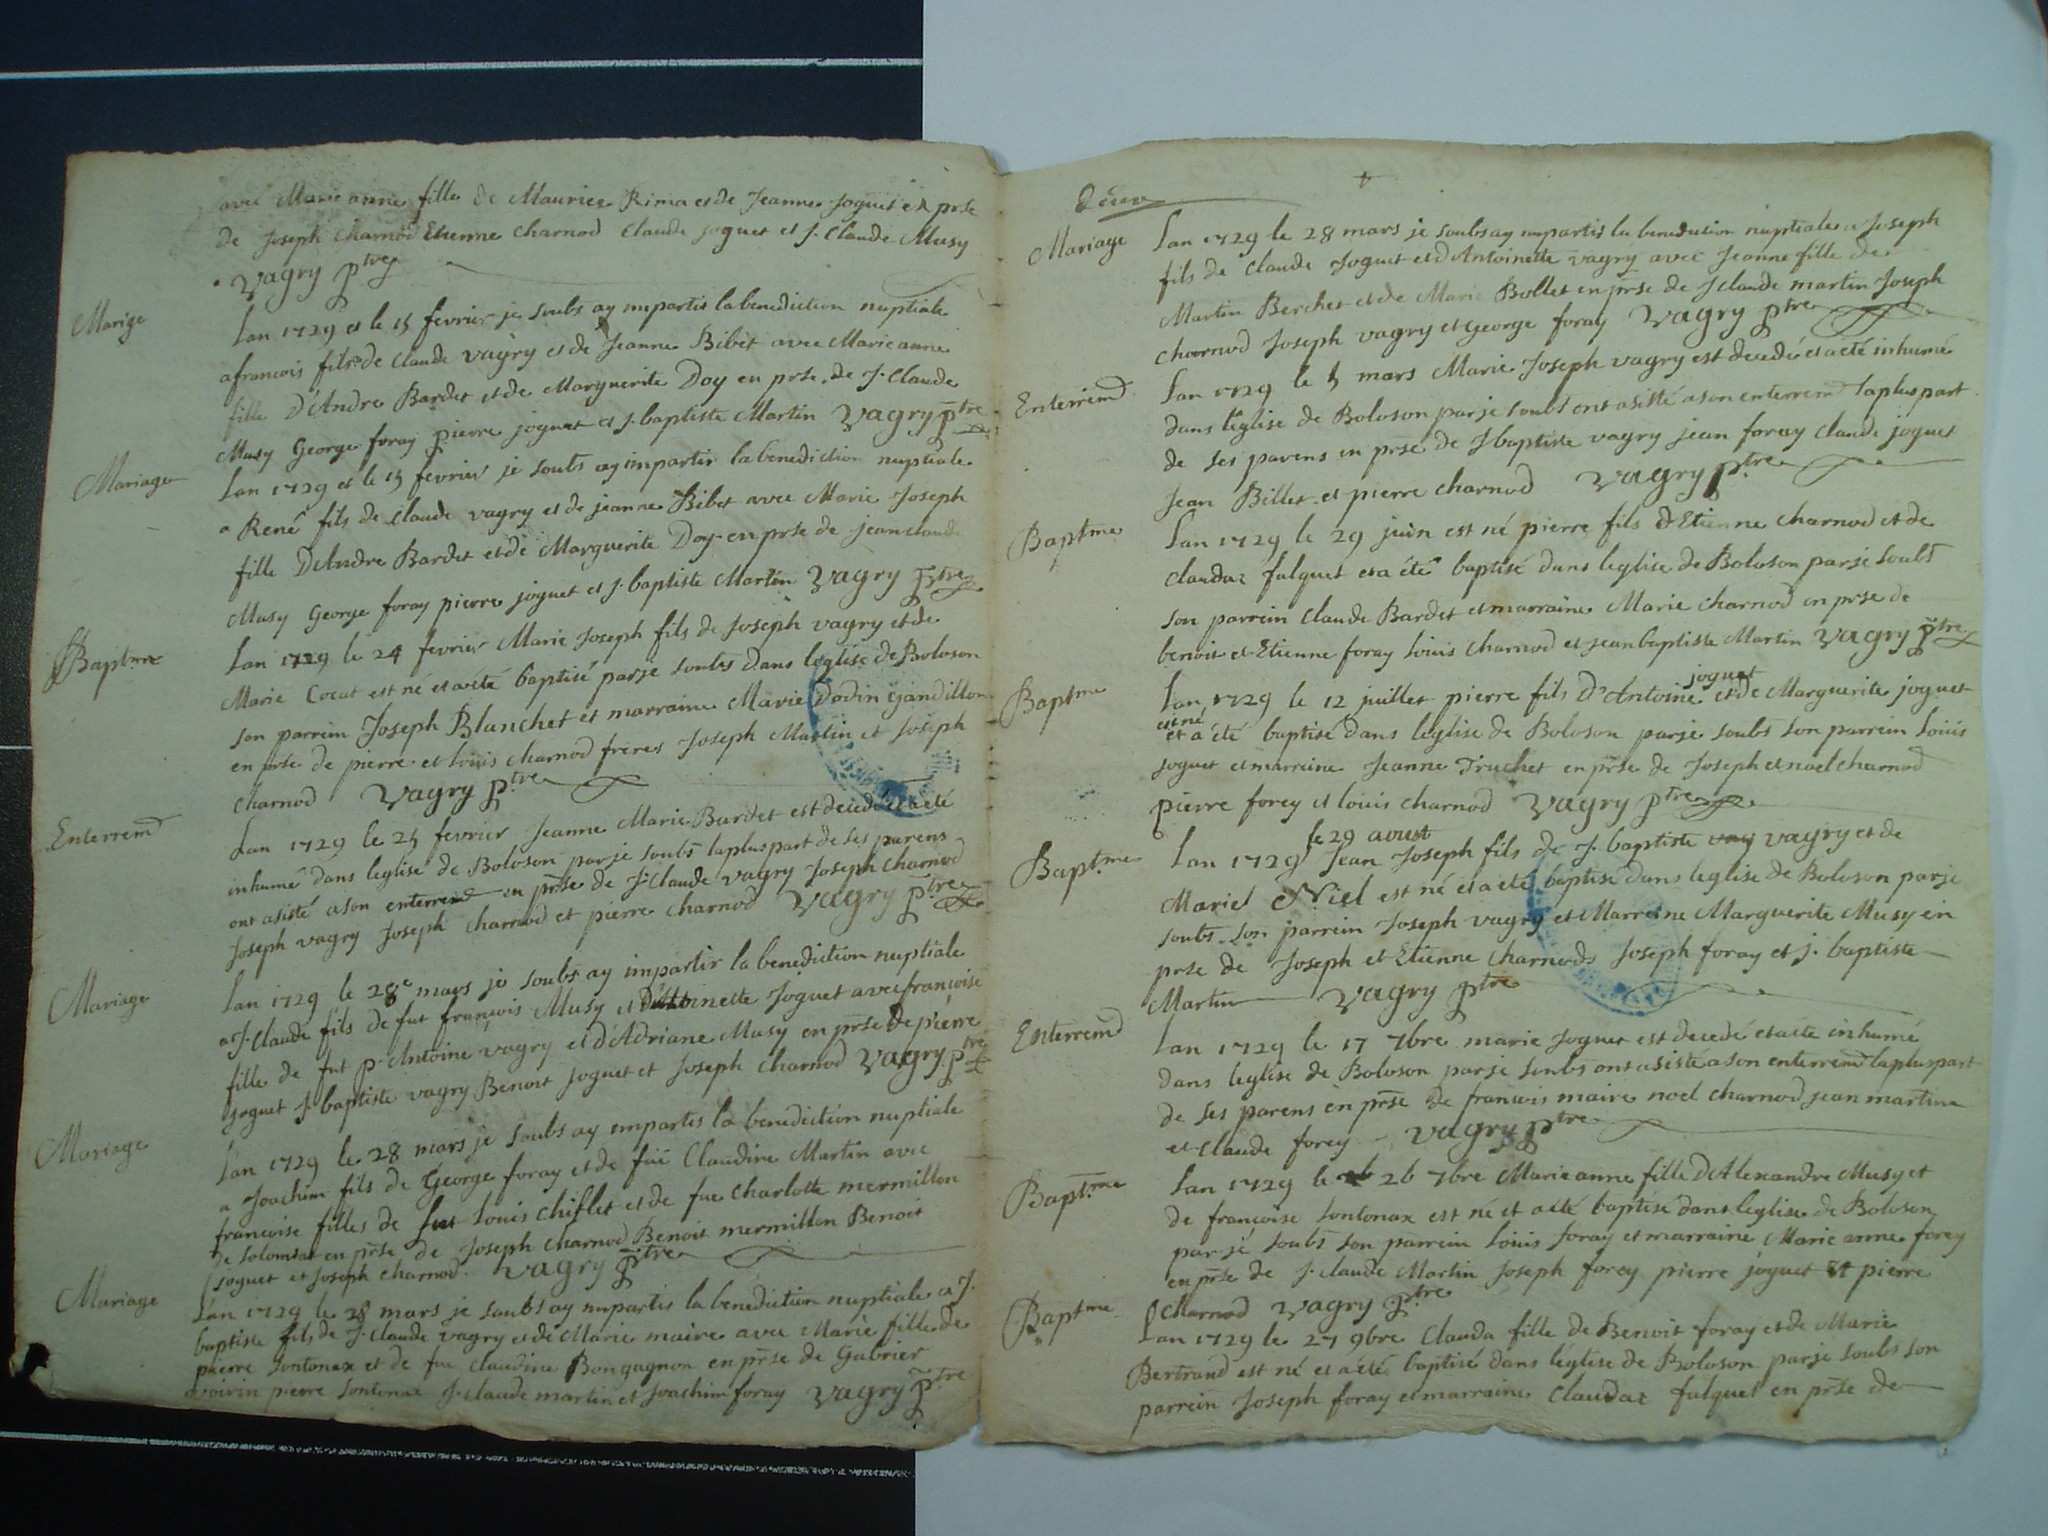 avec Marie anne fille de Maurice Rima et de Jeanne Joguet en prse
de Joseph Charnod Etienne Charnod Claude joguet et J. Claude Musy
Vagry ptre
Marige
Lan 1729 et le 15 fevrier je soubs ay impartis la benediction nuptiale
a francois fils de Claude Vagry et de Jeanne Bibet avec Marie anne
fille d'Andre Bardet et de Marguerite Doy en prse de J. Claude
Musy George foray pierre joguet et J. baptiste Martin Vagry ptre
Mariage
Lan 1729 et le 15 fevrier je soubs ay impartir la benediction nuptiale
a René fils de Claude vagry et de jeanne Bibet avec Marie Joseph
fille DeAndre Bardet et de Marguerite Doy en prse de jean claude
Musy George foray pierre joguet et J. baptiste Martin Vagry ptre
Baptme
Lan 1729 le 24 fevrier Marie Joseph fils de Joseph vagry et de
Marie Cocat est né et a eté baptisé par je soubs dans leglise de Boloson
son parrein Joseph Blanchet et marraine Marie Dodin Gandillon
en prse de pierre et loüis charnod freres Joseph Martin et Joseph
Charnod Vagry ptre
Enterremd
Lan 1729 le 25 fevrier Jeanne Marie Bardet est decedé et a eté
inhumé dans leglise de Boloson par je soubs la pluspart de ses parens
ont asisté a son enterremd en prse de J. Claude vagry Joseph Charnod
Joseph vagry Joseph Charnod et pierre Charnod Vagry ptre
Mariage
Lan 1729 le 28e mars je soubs ay impartir la benediction nuptiale
a J. Claude fils de fut francois Musy et d'Antoinette Joguet avec francoise
fille de fut p. Antoine vagry et d'Adriane Musy en prse de pierre
joguet J. baptiste vagry Benoit joguet et Joseph Charnod Vagry ptre
Mariage
Lan 1729 le 28 mars je soubs ay impartis la benediction nuptiale
a Joachim fils de George foray et de füe Claudine Martin avec
francoise filles de fut Louis Chiflet et de fue Charlotte mermillon
de Solomiat en prse de Joseph Charnod Benoit mermillon Benoit
joguet et Joseph Charnod. Vagry ptre
Mariage
Lan 1729 le 28 mars je soubs ay impartis la benediction nuptiale a J.
baptiste fils de J. Claude vagry et de Marie maire avec Marie fille de
pierre Sontonax et de fue Claudine Bongagnon en prse de Gabrier
voirin pierre Sontonax J. Claude martin et Joachim foray Vagry ptre
deux
Mariage
Lan 1729 le 28 mars je soubs ay impartis la benediction nuptiale a Joseph
fils de Claude Joguet et d'Antoinette vagry avec Jeanne fille de
Martin Berchet et de Marie Bollet en prse de J claude martin Joseph
charnod Joseph vagry et George foray Vagry ptre
Enterremd
Lan 1729 le 5 mars Marie Joseph vagry est decedé et a eté inhumé
dans leglise de Boloson par je soubs ont asisté a son enterremd la pluspart
de ses parens en prse de J baptiste vagry jean foray Claude joguet
Jean Billet et pierre charnod Vagry ptre
Baptme
Lan 1729 le 29 juin est né pierre fils d'Etienne charnod et de
Claudaz fulquet et a été baptisé dans leglise de Boloson par je soubs
son parrein Claude Bardet et marraine Marie Charnod en prse de
benoit et Etienne foray loüis Charnod et jean baptiste Martin Vagry ptre
Baptme
joguet
Lan 1729 le 12 juillet pierre fils d'Antoine et de Marguerite joguet
est né
et a été baptisé dans leglise de Boloson par je soubs son parrein loüis
joguet et marraine Jeanne Truchet en prse de Joseph et noel charnod
pierre forey et louis charnod Vagry ptre
le 29 aoust
Baptme
Lan 1729 Jean Joseph fils de J. baptiste vay vagry et de
Marie Niel est né et a eté baptisé dans leglise de Boloson par je
soubs son parrein Joseph vagry et Marraine Marguerite Musy en
prse de Joseph et Etienne Charnods Joseph foray et J. baptiste
Martin Vagry ptre
Enterremd
Lan 1729 le 17 7bre marie Joguet est decedé et a eté inhumé
dans leglise de Boloson par je soubs ont asisté a son enterremd la pluspart
de ses parens en prse de francois maire noel charnod jean martin
et Claude forey Vagry ptre
Baptme
Lan 1729 le 26 7bre Marie anne fille d'Alexandre Musy et
de francoise Sontonax est né et a été baptisé dans leglise de Boloson
par je soubs son parrein loüis foray et marraine Marie anne forey
en prse de J. Claude Martin Joseph forey pierre joguet et pierre
Charnod Vagry ptre
Baptme
Lan 1729 le 27 9bre Clauda fille de Benoit foray et de Marie
Bertrand est né et a eté baptisé dans leglise de Boloson par je soubs son
parrein Joseph foray et marraine Claudaz fulquet en prse de